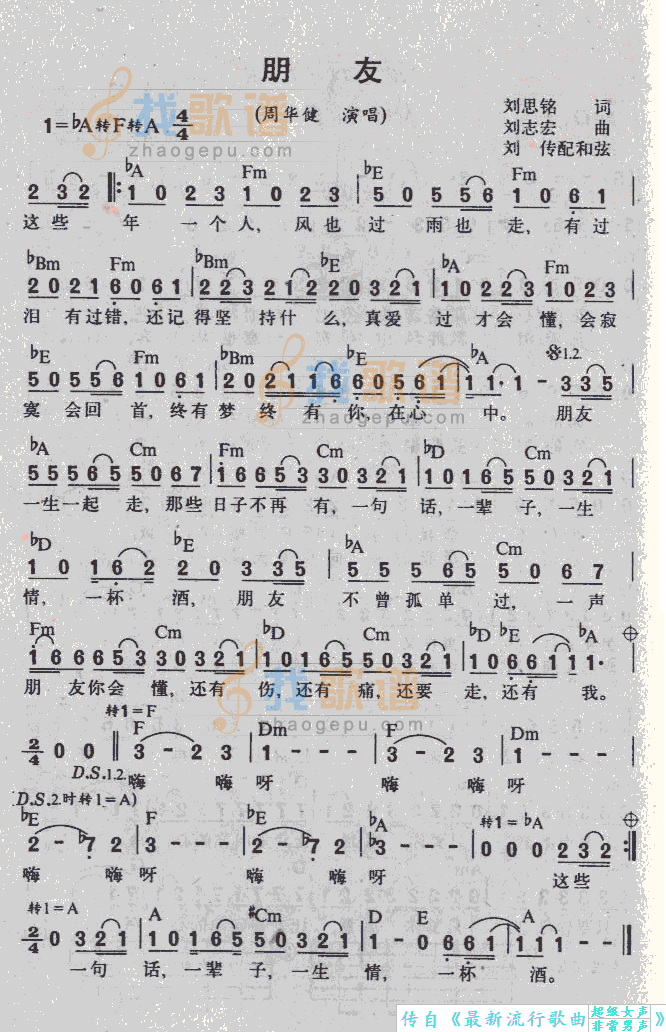 朋 友
(周华健 演唱)
刘思铭 词
刘志宏 曲
刘 传配和弦
1=♭A转F转A 4/4
找歌谱
zhaogepu.com
♭A Fm ♭E Fm
2 3 2 ‖: 1 0 2 3 1 0 2 3 | 5 0 5 5 6 1 0 6 1 |
这些 年 一个人,风也过 雨也走,有过
♭Bm Fm ♭Bm ♭E ♭A Fm
2 0 2 1 6 0 6 1 | 2 2 3 2 1 2 2 0 3 2 1 | 1 0 2 2 3 1 0 2 3
泪 有过错,还记得坚 持什 么,真爱 过才会 懂,会寂
♭E Fm ♭Bm ♭E ♭A 1.2.
5 0 5 5 6 1 0 6 1 | 2 0 2 1 1 6 6 0 5 6 1 | 1 1· 1 - 3 3 5
寞 会回 首,终有梦 终 有 你,在心 中。 朋友
找歌谱
zhaogepu.com
♭A Cm Fm Cm ♭D
5 5 5 6 5 5 0 6 7 | 1 6 6 5 3 3 0 3 2 1 | 1 0 1 6 5 5 0 3 2 1
一生一起 走,那些日子不再 有,一句 话,一辈 子,一生
♭D ♭E ♭A Cm
1 0 1 6 2 2 0 3 3 5 | 5 5 5 6 5 5 0 6 7
情,一杯 酒,朋友 不曾孤单 过,一声
Fm Cm ♭D Cm ♭D ♭E ♭A
1 6 6 6 5 3 3 0 3 2 1 | 1 0 1 6 5 5 0 3 2 1 | 1 0 6 6 1 1 1·
朋 友你会 懂,还有 伤,还有 痛,还要 走,还有 我。
找歌谱
zhaogepu.com
转1=F F Dm F Dm
2/4 0 0 ‖ 3 - 2 3 | 1 - - - | 3 - 2 3 | 1 - - -
D.S.1.2. 嗨 嗨呀 嗨 嗨呀
D.S.2.时转1=A)
♭E F ♭E ♭A 转1=♭A
2 - ♭7 2 | 3 - - - | 2 - ♭7 2 | ♭3 - - - | 0 0 0 2 3 2 :‖
嗨 嗨呀 嗨 嗨呀 这些
转1=A A #Cm D E A
2/4 0 3 2 1 | 1 0 1 6 5 5 0 3 2 1 | 1 - 0 6 6 1 | 1 1 1 - - ‖
一句 话,一辈 子,一生 情, 一杯 酒。
传自《最新流行歌曲
超级女声
非常男声